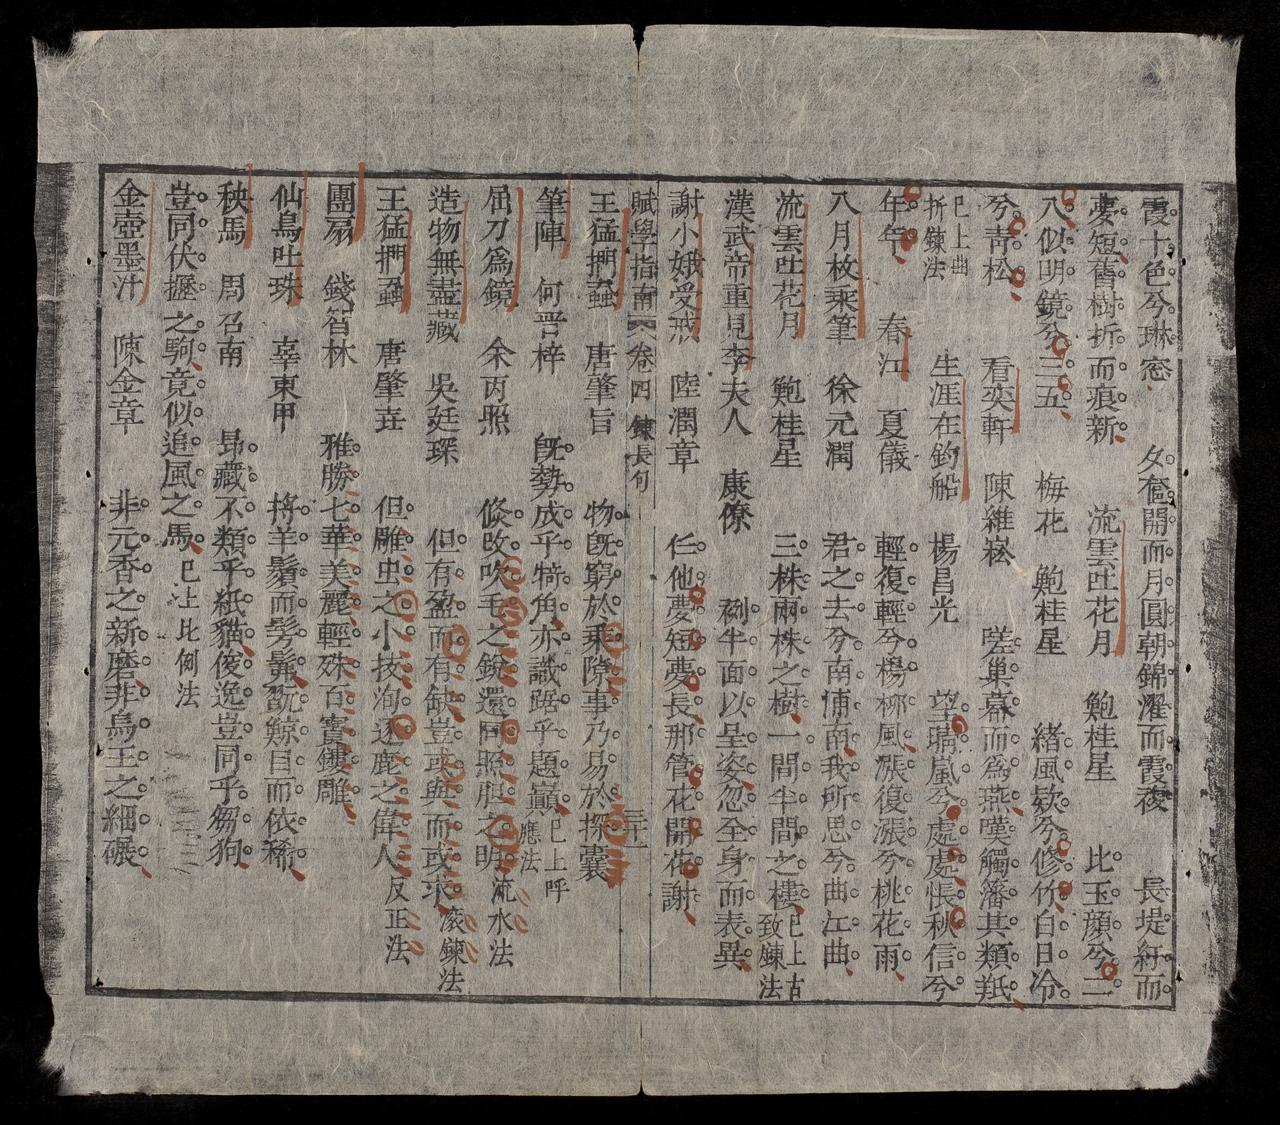 霞十色兮琳窓 夕奩開而月圓朝錦濯而霞複 長堤紆而
夢短舊樹折而痕新 流雲吐花月 鮑桂星 比玉顏兮二
八似明鏡兮三五 梅花 鮑桂星 緒風欵兮修竹白日冷
兮靑松 看奕軒 陳維崧 嗟巢幕而爲燕嘆觸藩其類羝
已上曲折鍊法 生涯在釣船 楊昌光 望晴嵐兮處處悵秋信兮
年年 春江 夏儀 輕復輕兮楊柳風漲復漲兮桃花雨
八月枚乘筆 徐元潤 君之去兮南浦南我所思兮曲江曲
流雲吐花月 鮑桂星 三株兩株之樹一間半間之樓已上古致鍊法
漢武帝重見李夫人 康僚 半面以呈姿忽全身而表異
謝小娥受戒 陸潤章 任他夢短夢長那管花開花謝
賦學指南 卷四 鍊長句 三十一
王猛捫蝨 唐肇旨 物旣窮於乘隙事乃易於探囊
筆陣 何晋梓 旣勢成乎犄角亦識踞乎題巔已上呼應法
屈刀爲鏡 余丙照 倏改吹毛之銳還同照胆之明流水法
造物無盡藏 吳廷琛 但有盈而有缺豈或與而或求滚鍊法
王猛捫蝨 唐肇 但雕虫之小技洵逐鹿之偉人反正法
團扇 錢智林 雅勝七華美麗輕殊百寳鏤雕
仙鳥吐珠 辜東甲 將羊鬚而髣髴翫鯨目而依稀
秧馬 周召南 昴藏不類乎紙猫俊逸豈同乎芻狗
豈同伏櫪之駒竟似追風之馬已上比例法
金壺墨汁 陳金章 非元香之新磨非烏玉之細碾